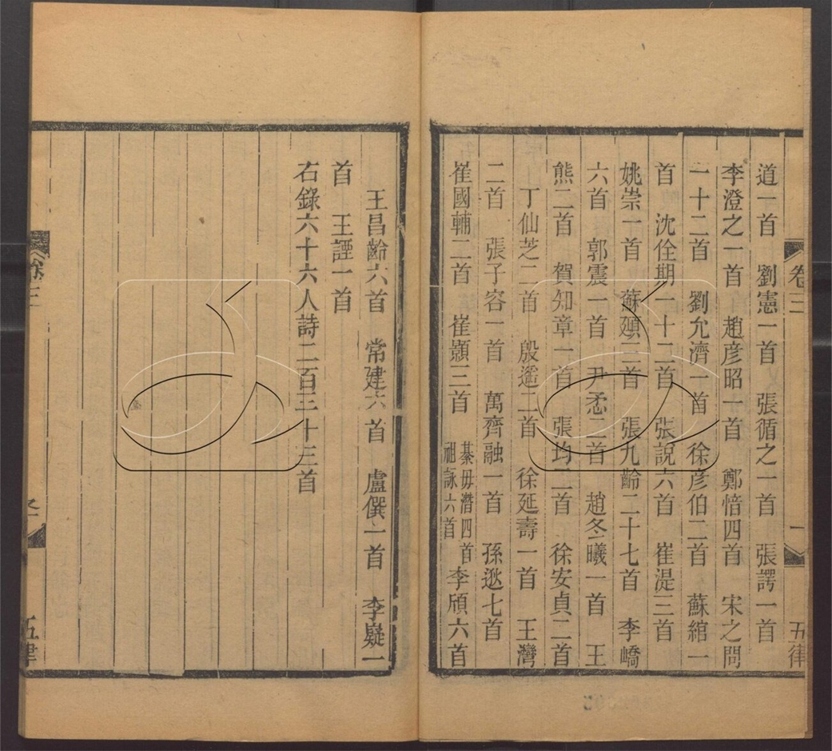 卷三　一　五律
道一首　劉憲一首　張循之一首　張諤一首
李澄之一首　趙彦昭一首　鄭愔四首　宋之問
一十二首　劉允濟一首　徐彦伯二首　蘇綰一
首　沈佺期一十二首　張說六首　崔湜三首
姚崇一首　蘇頲三首　張九齡二十七首　李嶠
六首　郭震一首　尹懋二首　趙冬曦一首　王
熊二首　賀知章一首　張均二首　徐安貞二首
丁仙芝二首　殷遙二首　徐延壽一首　王灣
二首　張子容一首　萬齊融一首　孫逖七首
崔國輔二首　崔顥三首　綦毋潛四首　祖詠六首　李頎六首
王昌齡六首　常建六首　盧僎一首　李嶷一
首　王諲一首
右錄六十六人詩二百三十三首
五律